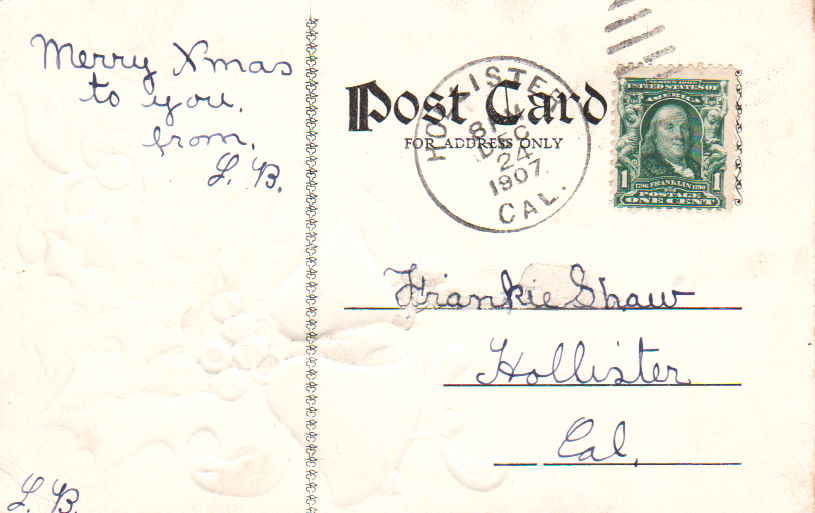 Merry Xmas
to you.
from.
L. B.
L. B.
Post Card
FOR ADDRESS ONLY
HOLLISTER
8 AM
DEC
24
1907.
CAL.
UNITED STATES OF
AMERICA
1
1706 FRANKLIN 1790
POSTAGE
ONE CENT
Frankie Shaw
Hollister
Cal.